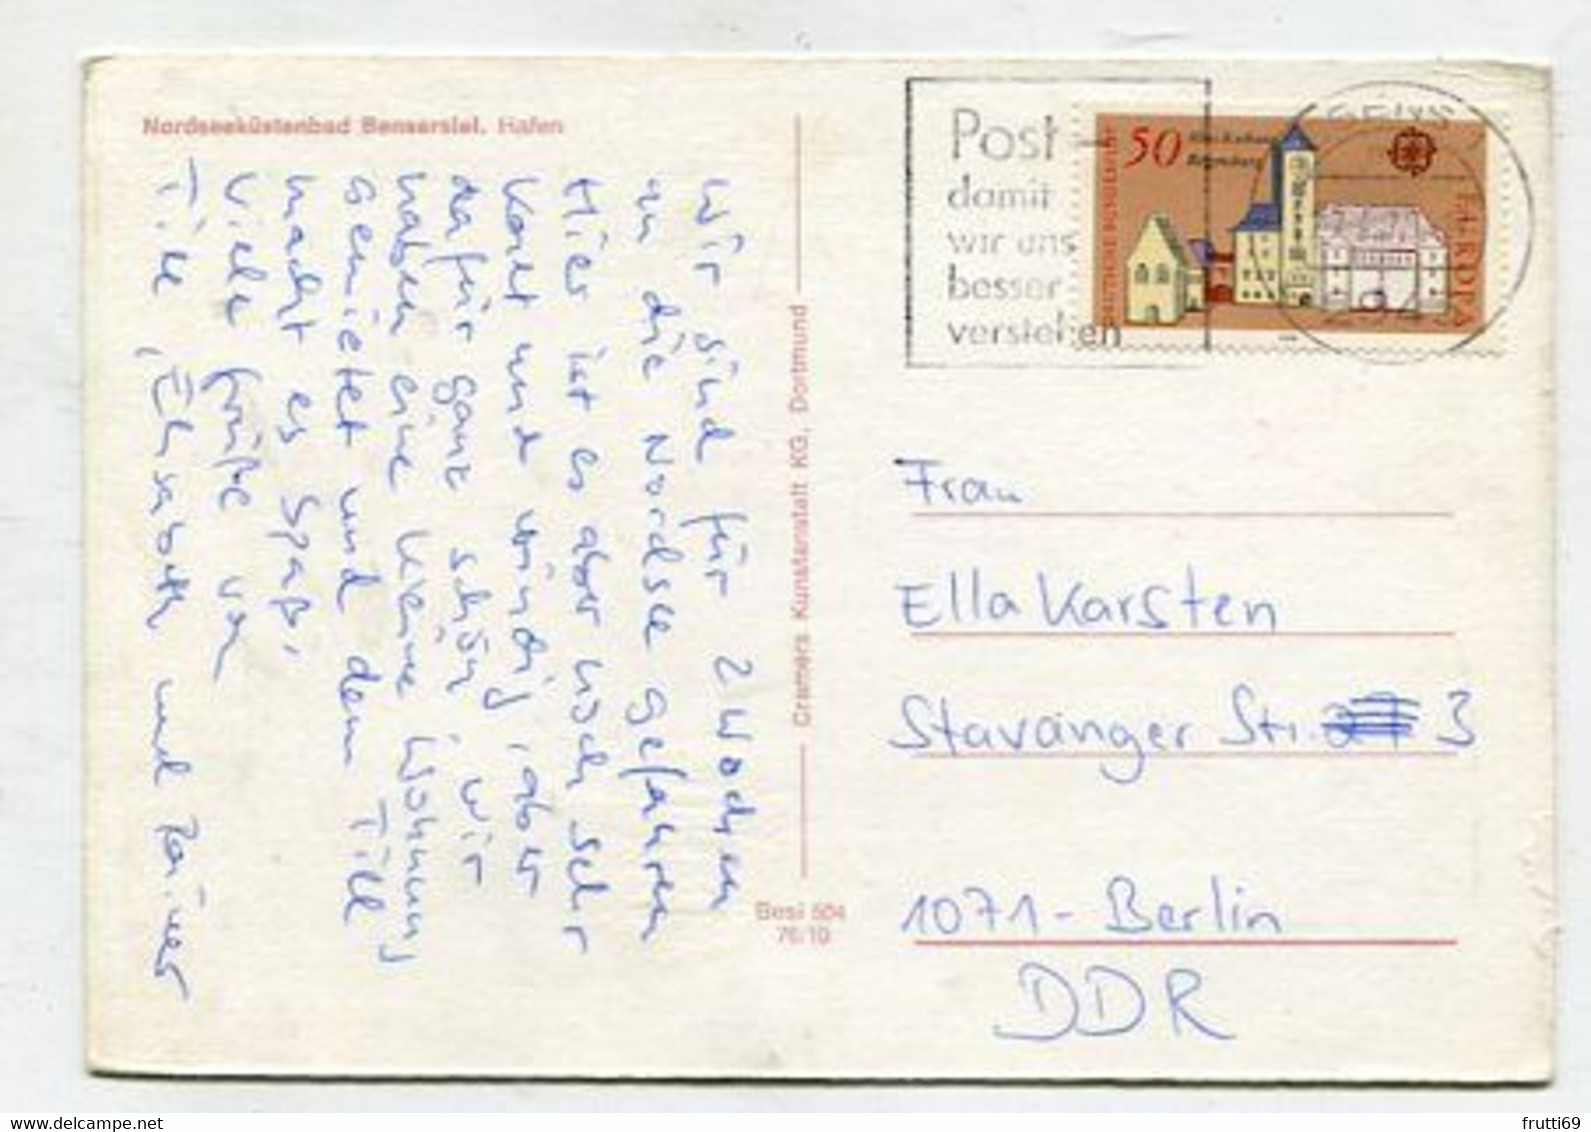 Nordseeküstenbad Bensersiel. Hafen
Wir sind für 2 Wochen
an die Nordsee gefahren
Hier ist es aber noch sehr
kalt und windig, aber
dafür ganz schön, wir
haben eine kleine Wohnung
gemietet und dem Till
macht es Spaß.
Viele Grüße von
Till, Elisabeth und Rainer
Cramers Kunstanstalt KG, Dortmund
Besi 504
76/10
Post -
damit
wir uns
besser
verstehen
50
Altes Rathaus
Regensburg
DEUTSCHE BUNDESPOST
EUROPA
Frau
Ella Karsten
Stavanger Str. 3
1071 - Berlin
DDR
frutti69